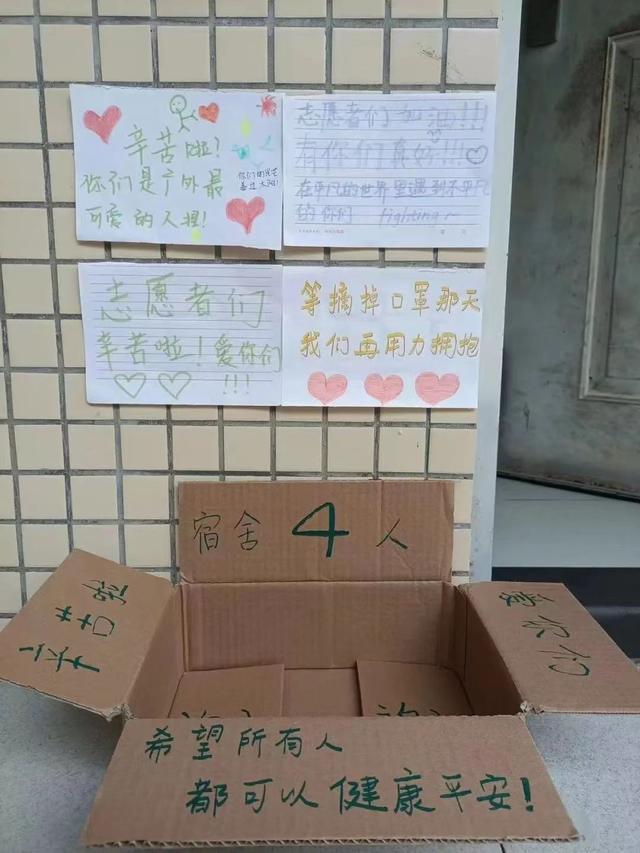 辛苦啦?
你们是广外最
可爱的人捏!
志愿者们加油!!!
有你们真好!!!
在平凡的世界里遇到不平凡
的你们 fighting~
志愿者们
辛苦啦!爱你们
!!!
等摘掉口罩那天
我们再用力拥抱
宿舍4人
辛苦啦
爱你们
希望所有人
都可以健康平安!